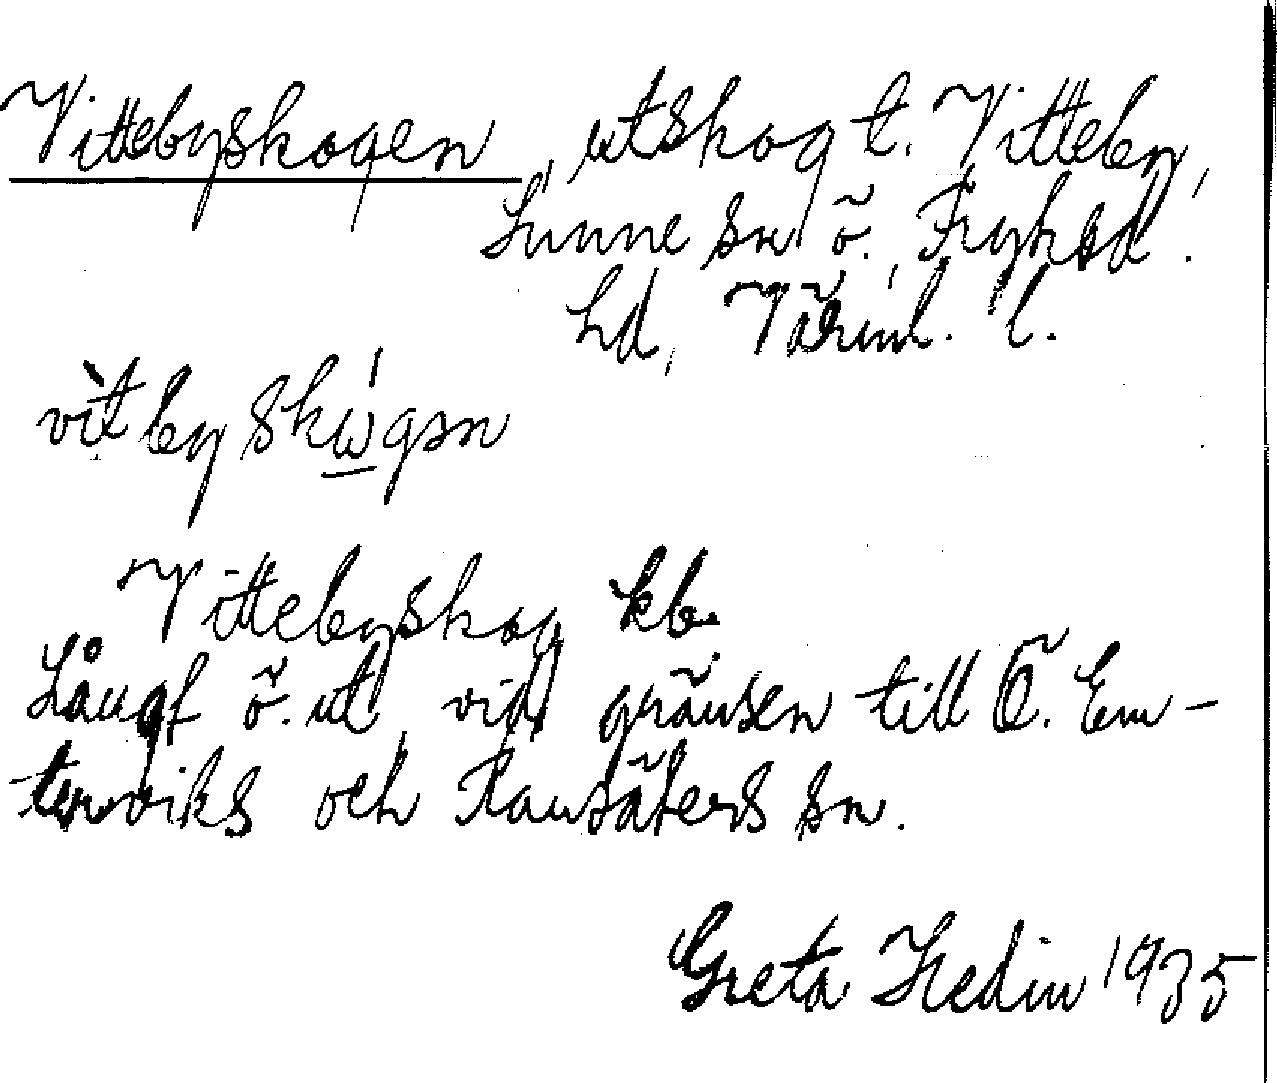 Vittebyskogen, utskog t. Vitteby,
Sunne sn, Ö. Fryksd.
hd, Värml. l.
vìtbyskẃgən
Vittebyskog kb.
Långt ö. ut, vid gränsen till Ö. Em-
terviks och Ransäters sn.
Greta Hedin 1935